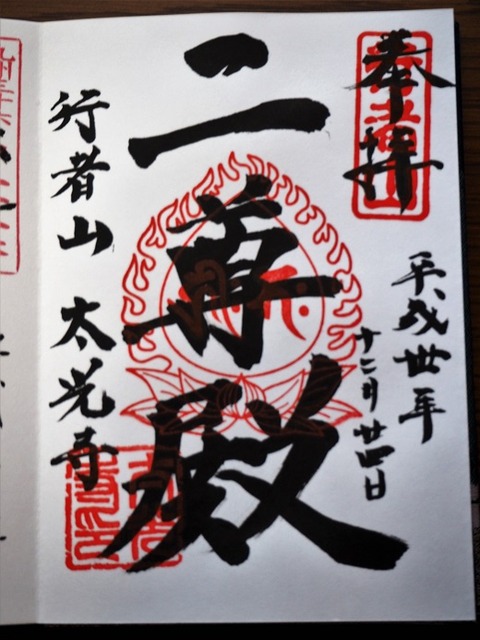 奉拝
平成丗年
十二月廿四日
二尊殿
行者山 太光寺